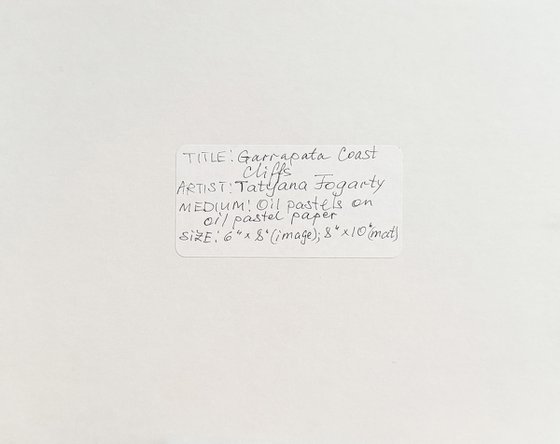 TITLE: Garrapata Coast
Cliffs
ARTIST: Tatyana Fogarty
MEDIUM: Oil pastels on
oil pastel paper
SIZE: 6" x 8" (image); 8" x 10" (mat)